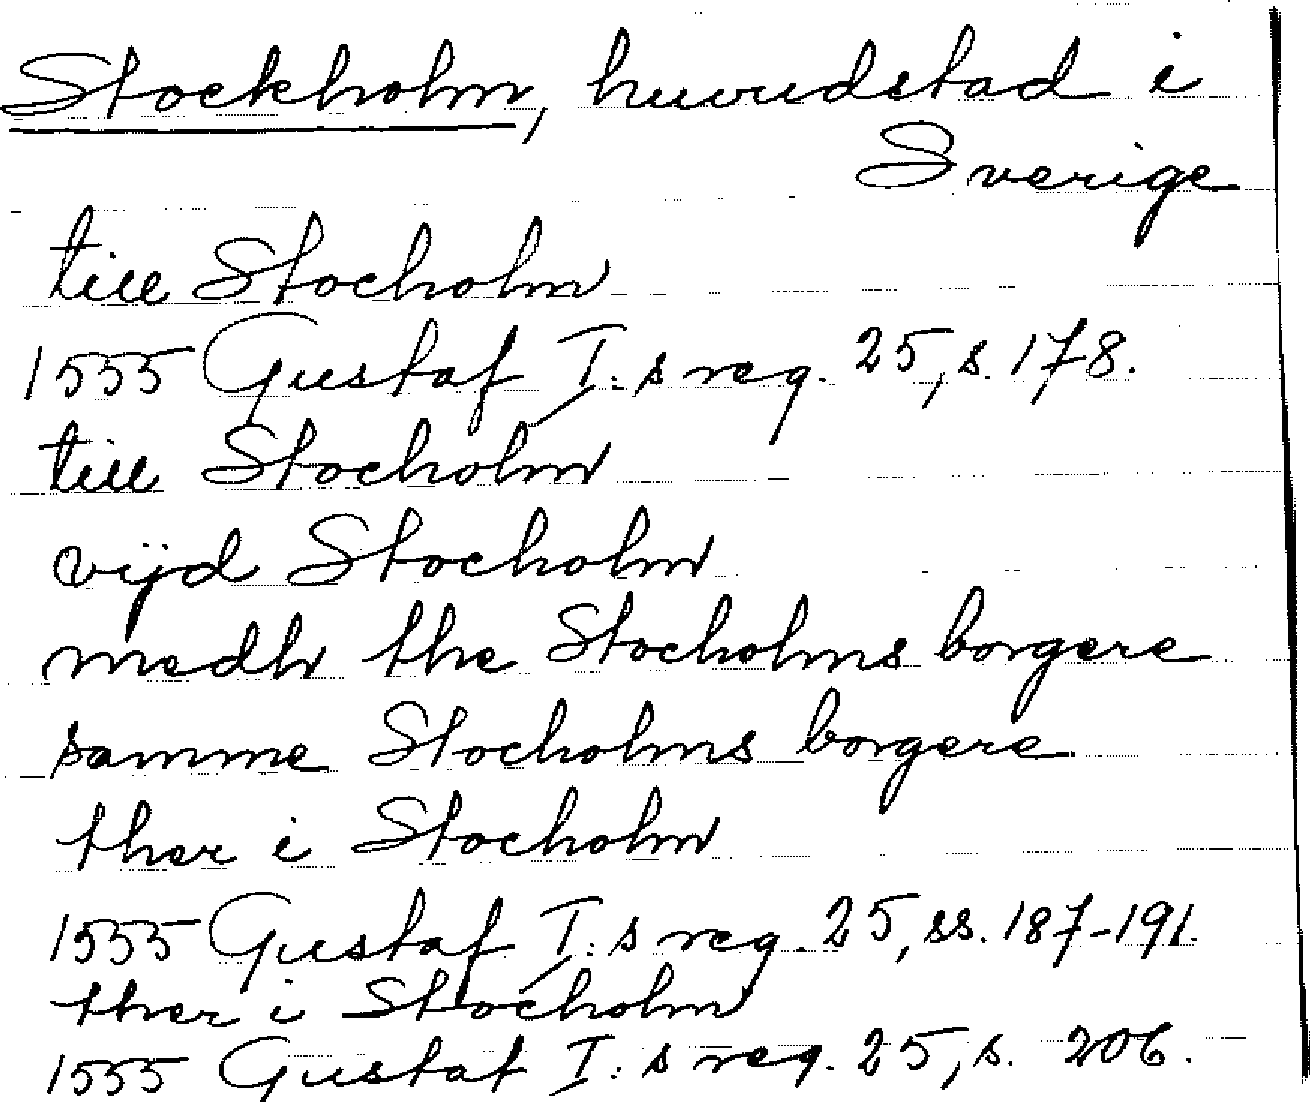 Stockholm, huvudstad i
Sverige
till Stocholm
1555 Gustaf I:s reg. 25, s. 178.
till Stocholm
vijd Stocholm
medh the Stocholms borgere
samme Stocholms borgere
ther i Stocholm
1555 Gustaf I:s reg. 25, ss. 187-191.
ther i Stocholm
1555 Gustaf I:s reg. 25, s. 206.